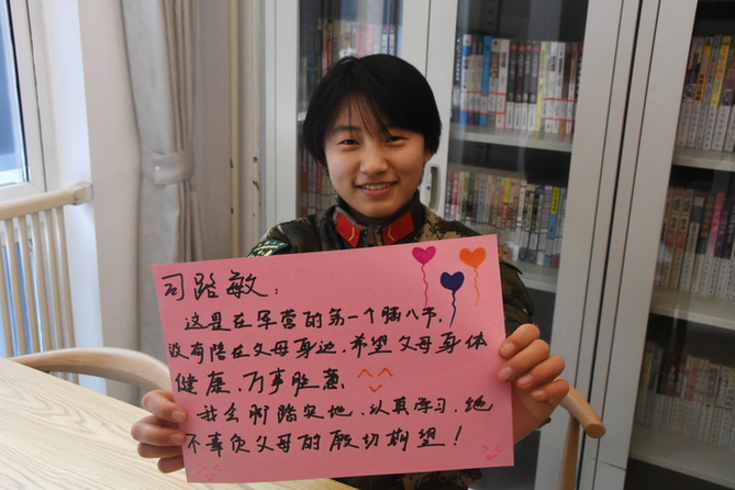 司路敏：
这是在军营的第一个腊八节，
没有陪在父母身边，希望父母身体
健康，万事胜意
我会脚踏实地，认真学习，绝
不辜负父母的殷切期望！